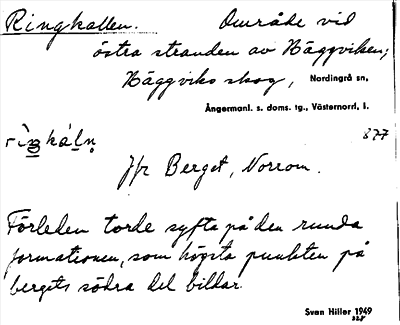 Ringkallen. Område vid
östra stranden av Häggviken;
Häggviks skog, Nordingrå sn,
Ångermanl. s. doms. tg., Västernorrl. l.
877
Jfr Berget, Norrom.
Förleden torde syfta på den runda
formationen, som högsta punkten på
bergets södra del bildar.
Sven Hiller 1949